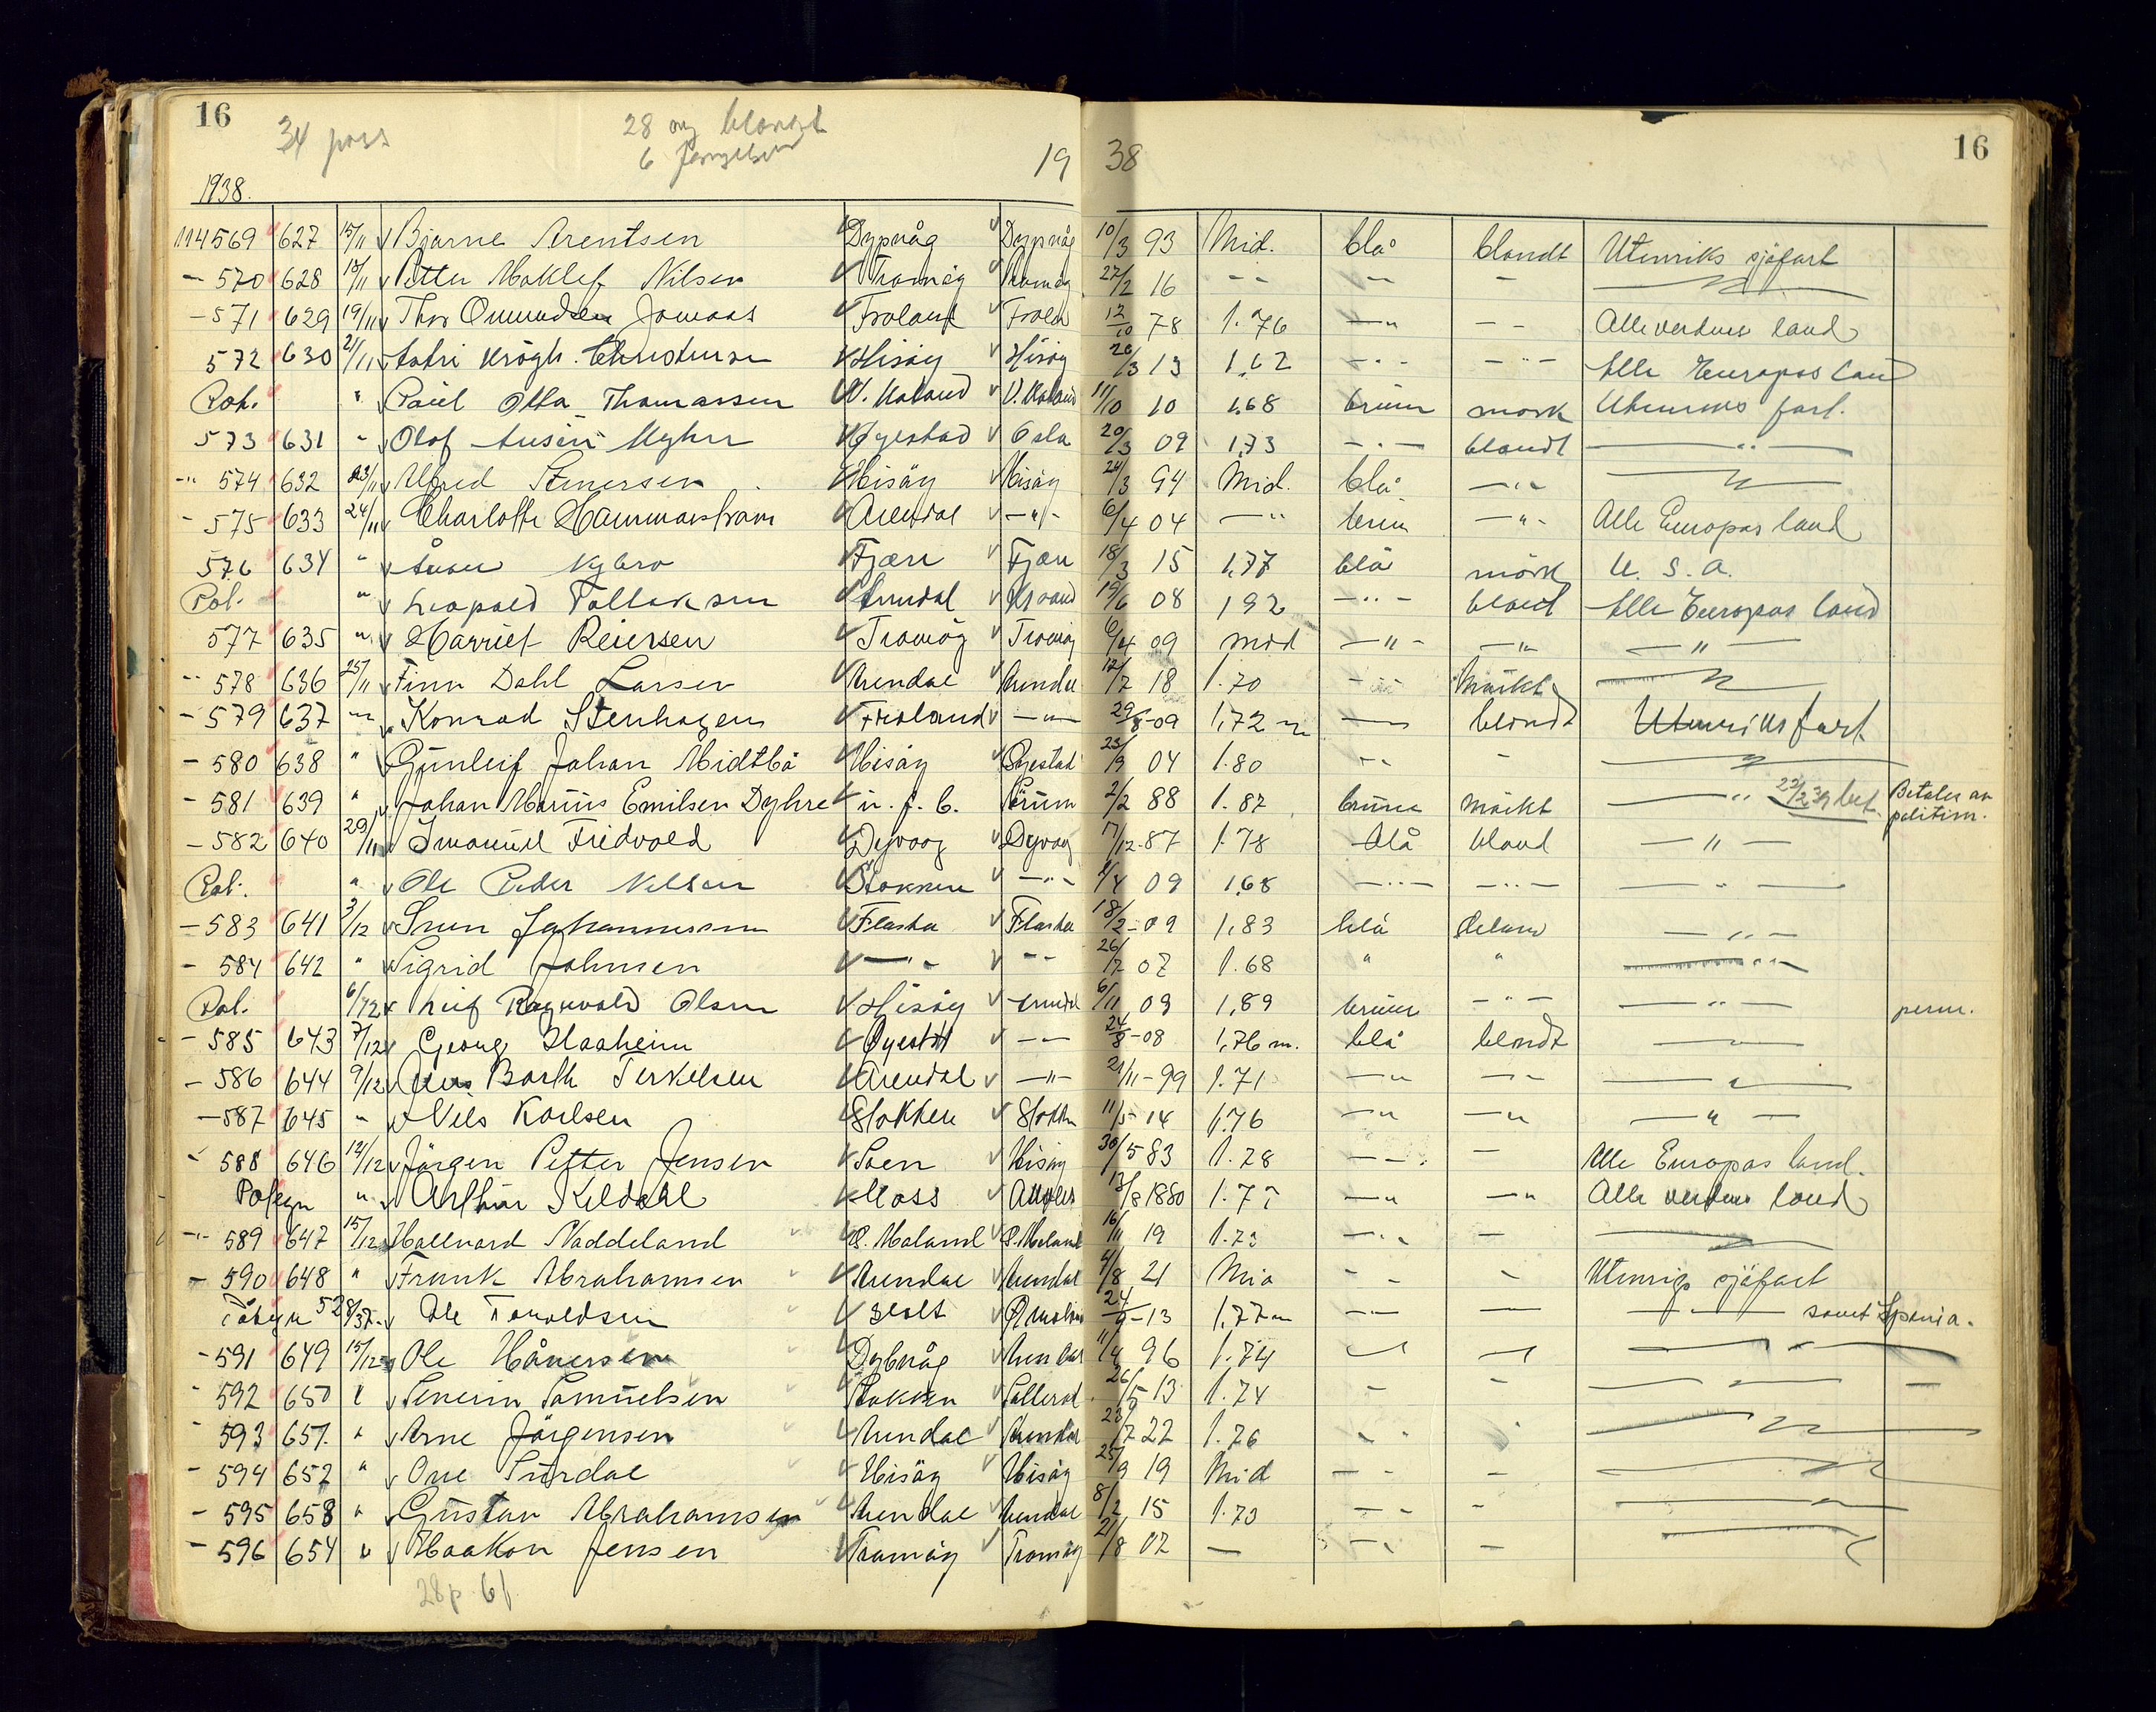 16
34 pass
28 ny
6
19 38
16
1938.
114569 627 15/11 Bjarne Arentsen Dypvåg Dypvåg 10/3 93 Mid. blå blondt Utenriks sjøfart
- 570 628 18/11 Petter Nilsen Tromøy Tromøy 27/2 16 - - - - -
- 571 629 19/11 Thor Froland 12/10 78 1.76 - " - - Alle verdens land
572 630 21/11 Krogh Christensen Hisøy Hisøy 1.62 - " - - " - Alle Europas land
Pol. " Paul Otto Thomassen 11/10 10 1,68 brun mørk fart.
573 631 " Olof Myhre Øyestad Oslo 20/3 09 1,73 - " - blondt - " -
- " 574 632 23/11 Alfred Stenersen Hisøy Hisøy 24/3 94 Mid. blå - " - "
- 575 633 24/11 Charlotte Hammarstrøm Arendal - " - 6/4 04 - " brun - " - Alle Europas land
576 634 " Nybro Fjære Fjære 18/3 15 1,77 blå mörk U. S. A.
Pol. " Leopold Tallaksen Arendal 19/6 08 1,92 - " - blond Alle Europas land
577 635 " Harriet Reiersen Tromøy Tromøy 6/4 09 mid - " - - " - " -
- " 578 636 25/11 Finn Dahl Larsen Arendal Arendal 18 1.70 - " - Mörkt "
- 579 637 - " - Konrad Stenhagen Froland - " - 29/8-09 1,72 m - " blondt Utenriksfart
- 580 638 " Gunleif Johan Midtbö Hisøy Øyestad 23/9 04 1.80 - " - "
- 581 639 " Johan Marius Emilsen Dyhre 2/2 88 1.87 brune mörkt - " 22/2 39 bet. Betales av politim.
- 582 640 29/11 Imanuel Fredvold Dyvåg Dyvåg 17/12-87 1.78 blå blond - " -
Pol. " Ole Peder Nilsen Stokken - " - 09 1,68 - " - - " - - " -
- 583 641 3/12 Johannessen Flosta Flosta 18/2-09 1,83 blå blond - " -
- 584 642 " Sigrid Johnsen - " - - " - 07 1.68 " " "
Pol. 6/12 Leif Ragnvald Olsen Hisøy Arendal 6/11 09 1,89 brune - " - - " - perm.
- 585 643 7/12 Georg Haaheim Øyestad - " - 24/8-08 1,76 m. blå blondt
- 586 644 9/12 Barth Terkelsen Arendal - " - 21/11-99 1.71 - " - " "
- 587 645 " Nils Karlsen Stokken Stokken 11/5 14 1,76 - " - " - " -
- 588 646 12/12 Jörgen Petter Jensen Hisøy 30/5 83 1.78 - " - - Alle Europas land.
" Arthur Kildahl Moss 13/8 1880 - " - " Alle verdens land
- " 589 647 15/12 Hallvard Naddeland Ø. Moland Ø. Moland 16/11 19 1.73 - " - -
- 590 648 " Frank Abrahamsen Arendal Arendal 4/8 21 Mid - - - Utenrigs sjøfart
528/37 Ole Toroldsen Holt 24/9-13 1,77 m - " - samt Spania.
- 591 649 15/12 Ole Håversen Dybvåg Arendal 96 1.74 " "
- 592 650 " Severin Samuelsen Stokken 26/5 13 1.74 - -
- 593 651. " Arne Jörgensen Arendal Arendal 22 1.76 " "
- 594 652 " Ove Surdal Hisøy Hisøy 25/9 19 Mid - - -
- 595 658 " Gustav Abrahamsen Arendal Arendal 8/2 15 1.73 - - -
- 596 654 " Haakon Jensen Tromøy Tromøy 21/8 02 - - " -
28p. 6f